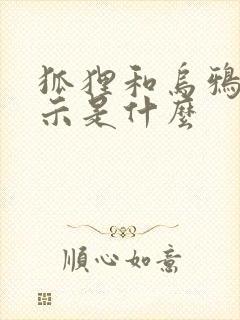 狐狸和烏鴉
示是什麽
順心如意